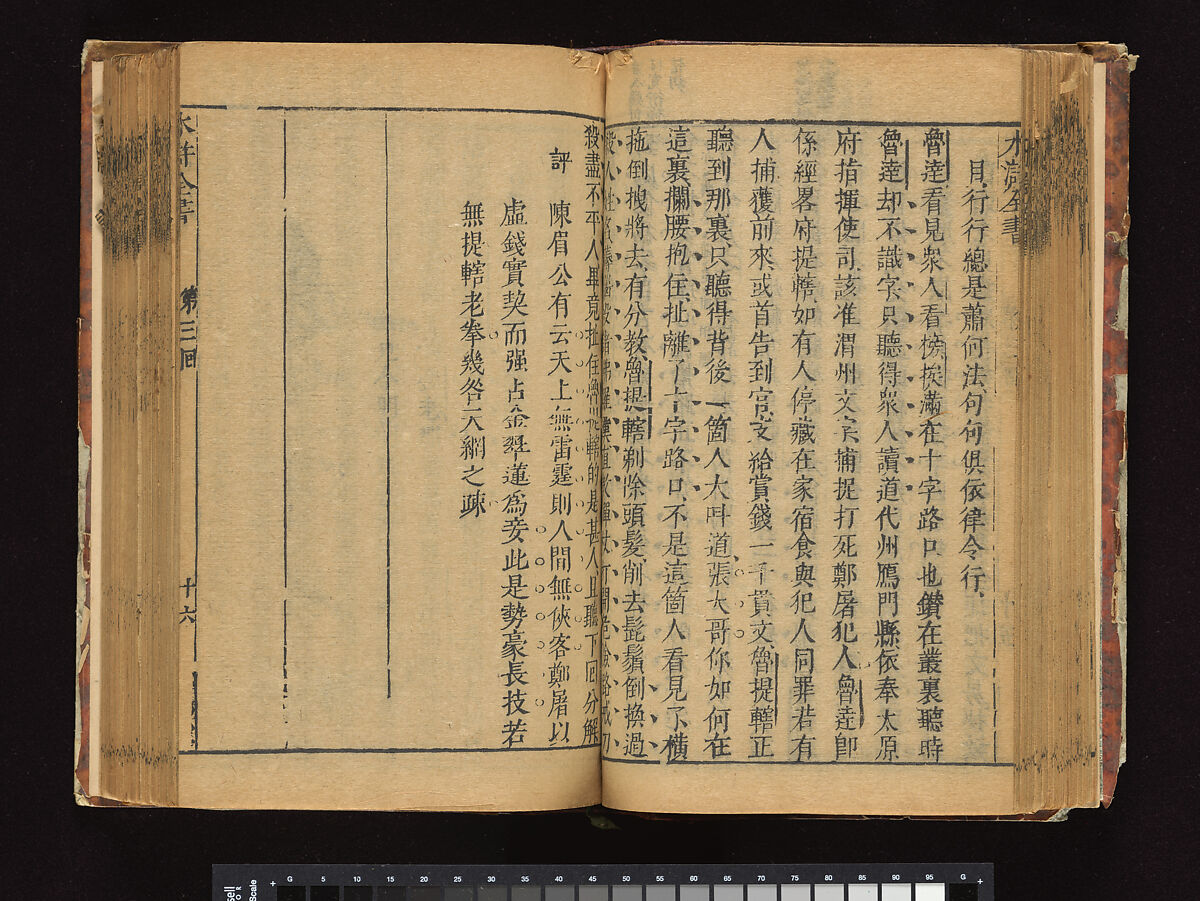 水滸全書
目行行總是蕭何法句句俱依律令行
魯達看見衆人看榜挨滿在十字路口也鑽在叢裏聽時
魯達却不識字只聽得衆人讀道代州鴈門縣依奉太原
府指揮使司該准渭州文字捕捉打死鄭屠犯人魯達即
係經畧府提轄如有人停藏在家宿食與犯人同罪若有
人捕獲前來或首告到官支給賞錢一千貫文魯提轄正
聽到那裏只聽得背後一箇人大呌道張大哥你如何在
這裏攔腰抱住扯離了十字路口不是這箇人看見了橫
拖倒拽將去有分教魯提轄剃除頭髮削去髭鬚倒換過
殺人姓名薅惱殺諸佛羅漢直教禪杖打開危險路戒刀
殺盡不平人畢竟扯住魯提轄的是甚人且聽下回分解
評
陳眉公有云天上無雷霆則人間無俠客鄭屠以
虛錢實契而强占金翠蓮爲妾此是勢豪長技若
無提轄老拳幾咎天網之疎
水滸全書
第三囘
十六
G 5 10 15 20 25 30 35 40 45 50 55 60 65 70 75 80 85 90 95 G